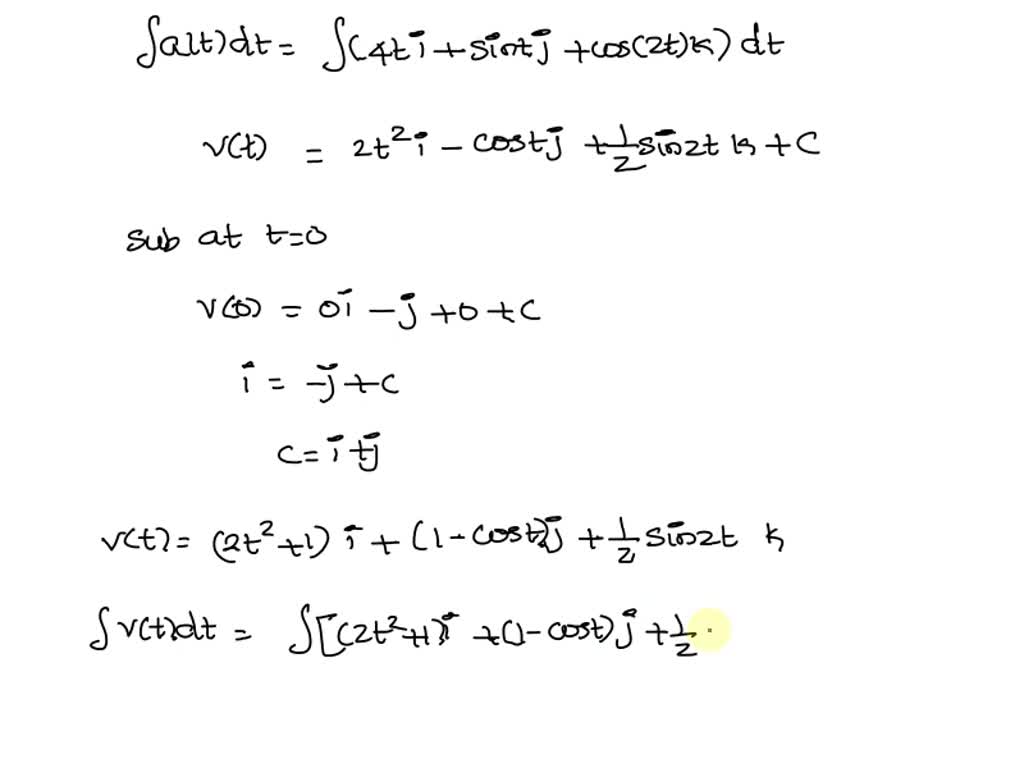 ∫a(t)dt = ∫(4t i + sint j + cos(2t) k) dt
v(t) = 2t² i - cost j + 1/2 sin2t k + C
sub at t=0
v(0) = 0i - j + 0 + C
i = -j + C
C = i + j
v(t) = (2t²+1) i + (1-cost) j + 1/2 sin2t k
∫v(t)dt = ∫[(2t²+1) i + (1-cost) j + 1/2